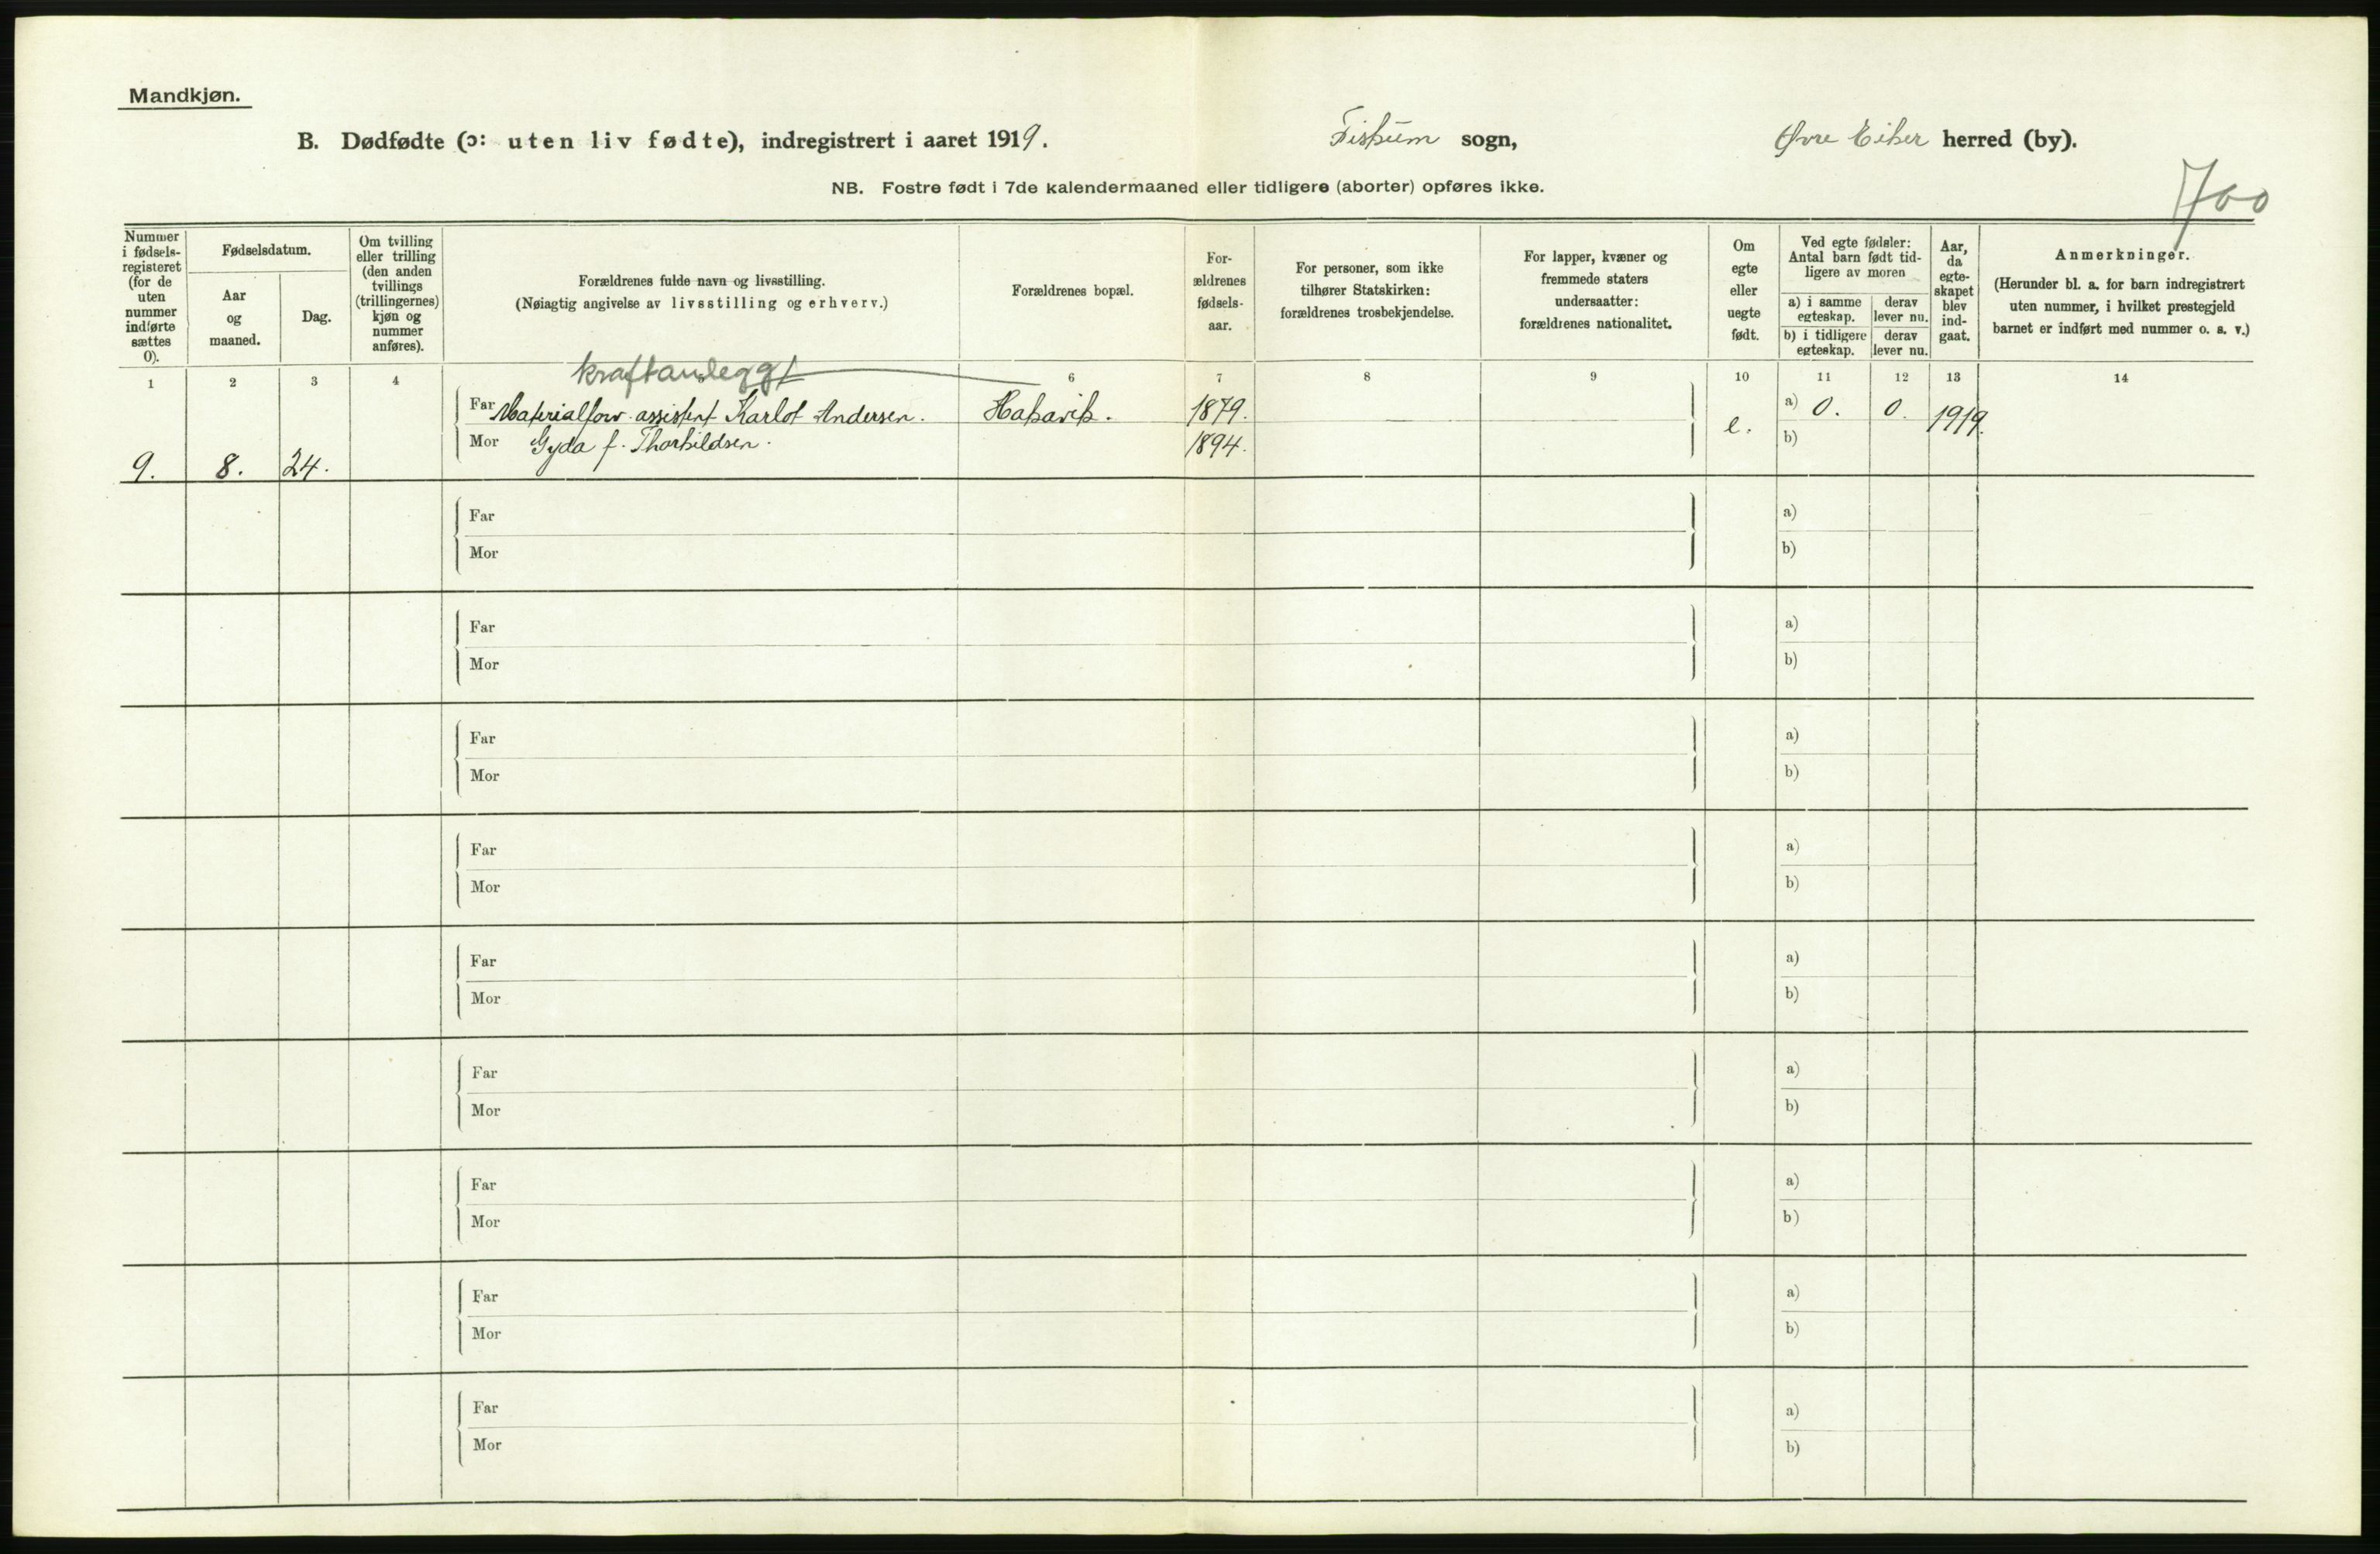 Mandkjøn.
B. Dødfødte (ɔ: uten liv fødte), indregistrert i aaret 1919. Fiskum sogn, Øvre Eiker herred (by).
NB. Fostre født i 7de kalendermaaned eller tidligere (aborter) opføres ikke.
700
Nummer i fødsels-registeret (for de uten nummer indførte sættes 0).
Fødselsdatum.
Aar og maaned.
Dag.
Om tvilling eller trilling (den anden tvillings (trillingernes) kjøn og nummer anføres).
Forældrenes fulde navn og livsstilling.
(Nøiagtig angivelse av livsstilling og erhverv.)
Forældrenes bopæl.
For-ældrenes fødsels-aar.
For personer, som ikke tilhører Statskirken: forældrenes trosbekjendelse.
For lapper, kvæner og fremmede staters undersaatter: forældrenes nationalitet.
Om egte eller uegte født.
Ved egte fødsler: Antal barn født tid-ligere av moren
a) i samme egteskap.
derav lever nu.
b) i tidligere egteskap.
derav lever nu.
Aar, da egte-skapet blev ind-gaat.
Anmerkninger.
(Herunder bl. a. for barn indregistrert uten nummer, i hvilket prestegjeld barnet er indført med nummer o. s. v.)
kraftanlegget
1 2 3 4 5 6 7 8 9 10 11 12 13 14
Far Materialforv. assistent Karlot Andersen. Hakavik. 1879. a) 0. 0. 1919.
Mor Gyda f. Thorkildsen. 1894. e. b)
9. 8. 24.
Far a)
Mor b)
Far a)
Mor b)
Far a)
Mor b)
Far a)
Mor b)
Far a)
Mor b)
Far a)
Mor b)
Far a)
Mor b)
Far a)
Mor b)
Far a)
Mor b)